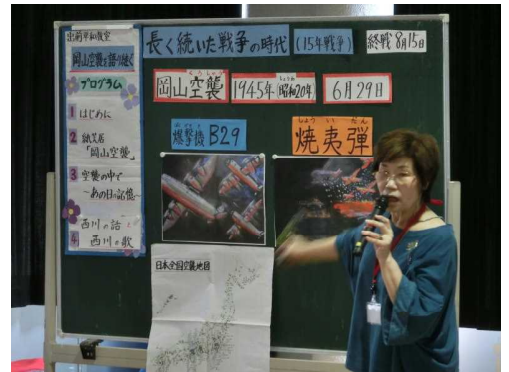 出前平和教室
岡山空襲を語り継ぐ
プログラム
1 はじめに
2 紙芝居
「岡山空襲」
3 空襲の中で
～あの日の記憶～
西川の話と
4 西川の歌
長く続いた戦争の時代
(15年戦争)
終戦 8月15日
くうしゅう
岡山空襲
しょうわ
1945年(昭和20年)
6月29日
爆撃機 B29
しょう い だん
焼夷弾
日本全国空襲地図